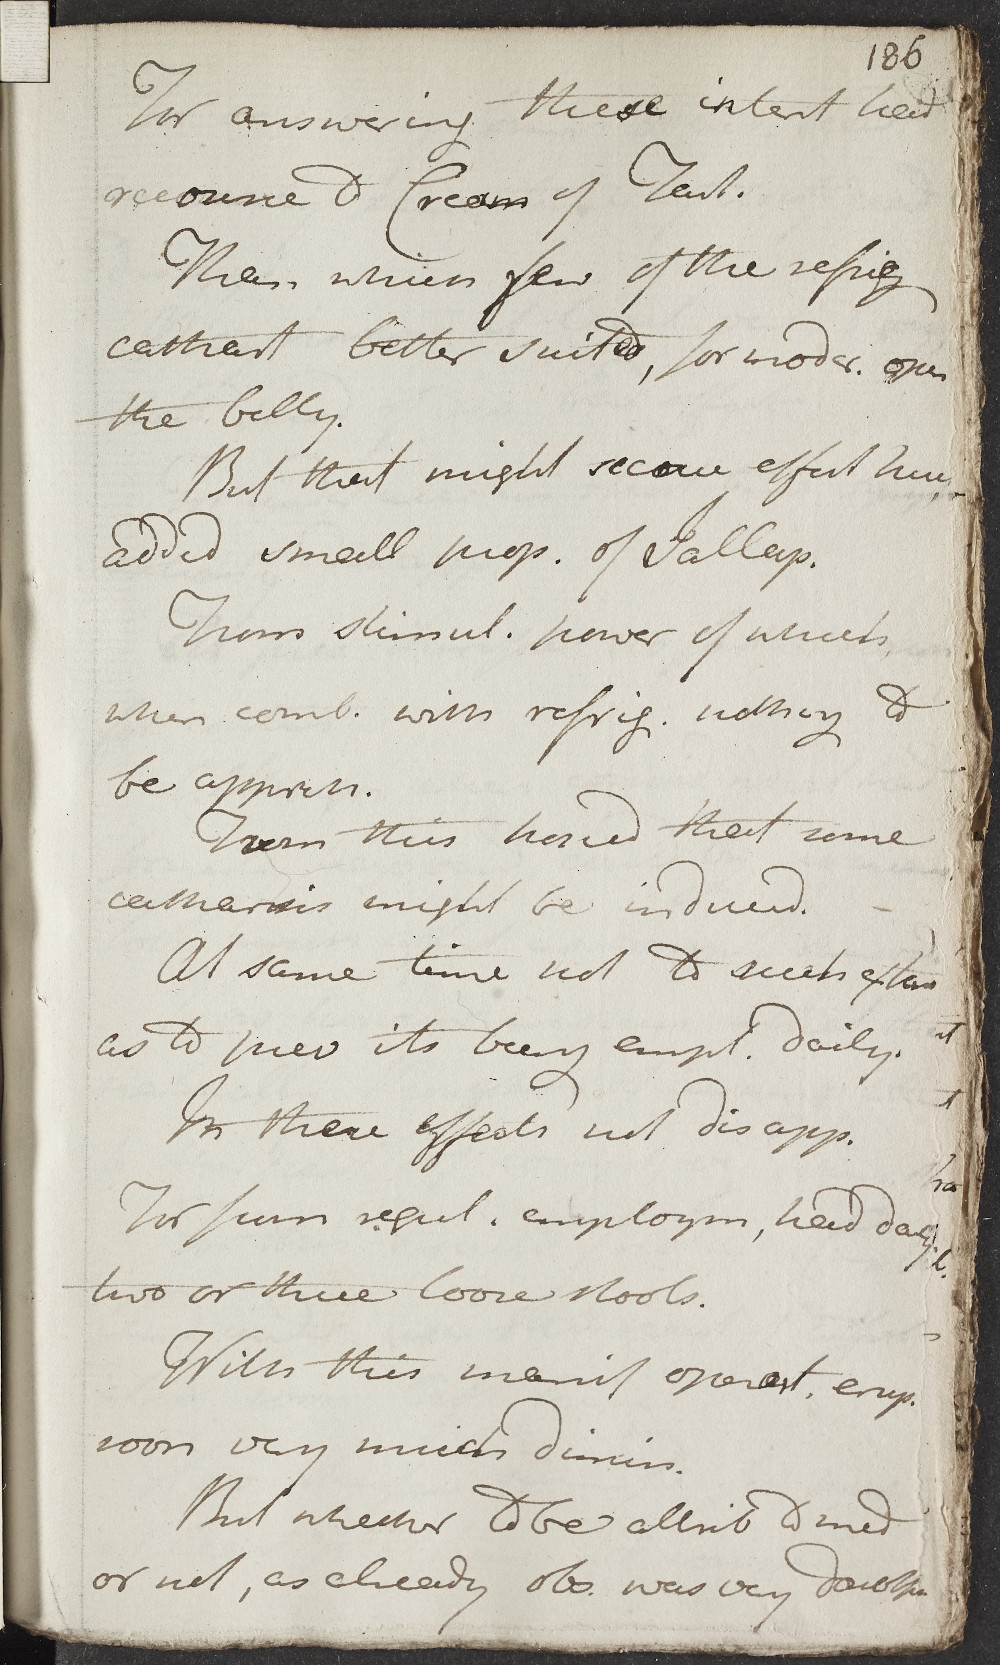 186
For answering these intent had
recourse to Cream of Tart.
Than which few of the refrig
cathart better suited, for moder. open
the belly.
But that might secure effect have
added small prop. of Jallap.
From stimul. power of which,
when comb. with refrig. nothing to
be appreh.
From this hoped that some
catharsis might be induced.
At same time not to such extent
as to prev its being empl. daily.
In these effects not disapp.
For from regul. employm, had daily
two or three loose stools.
With this manif operat. erup.
soon very much dimin.
But whether to be attrib to med
or not, as already obs. was very doubtfu